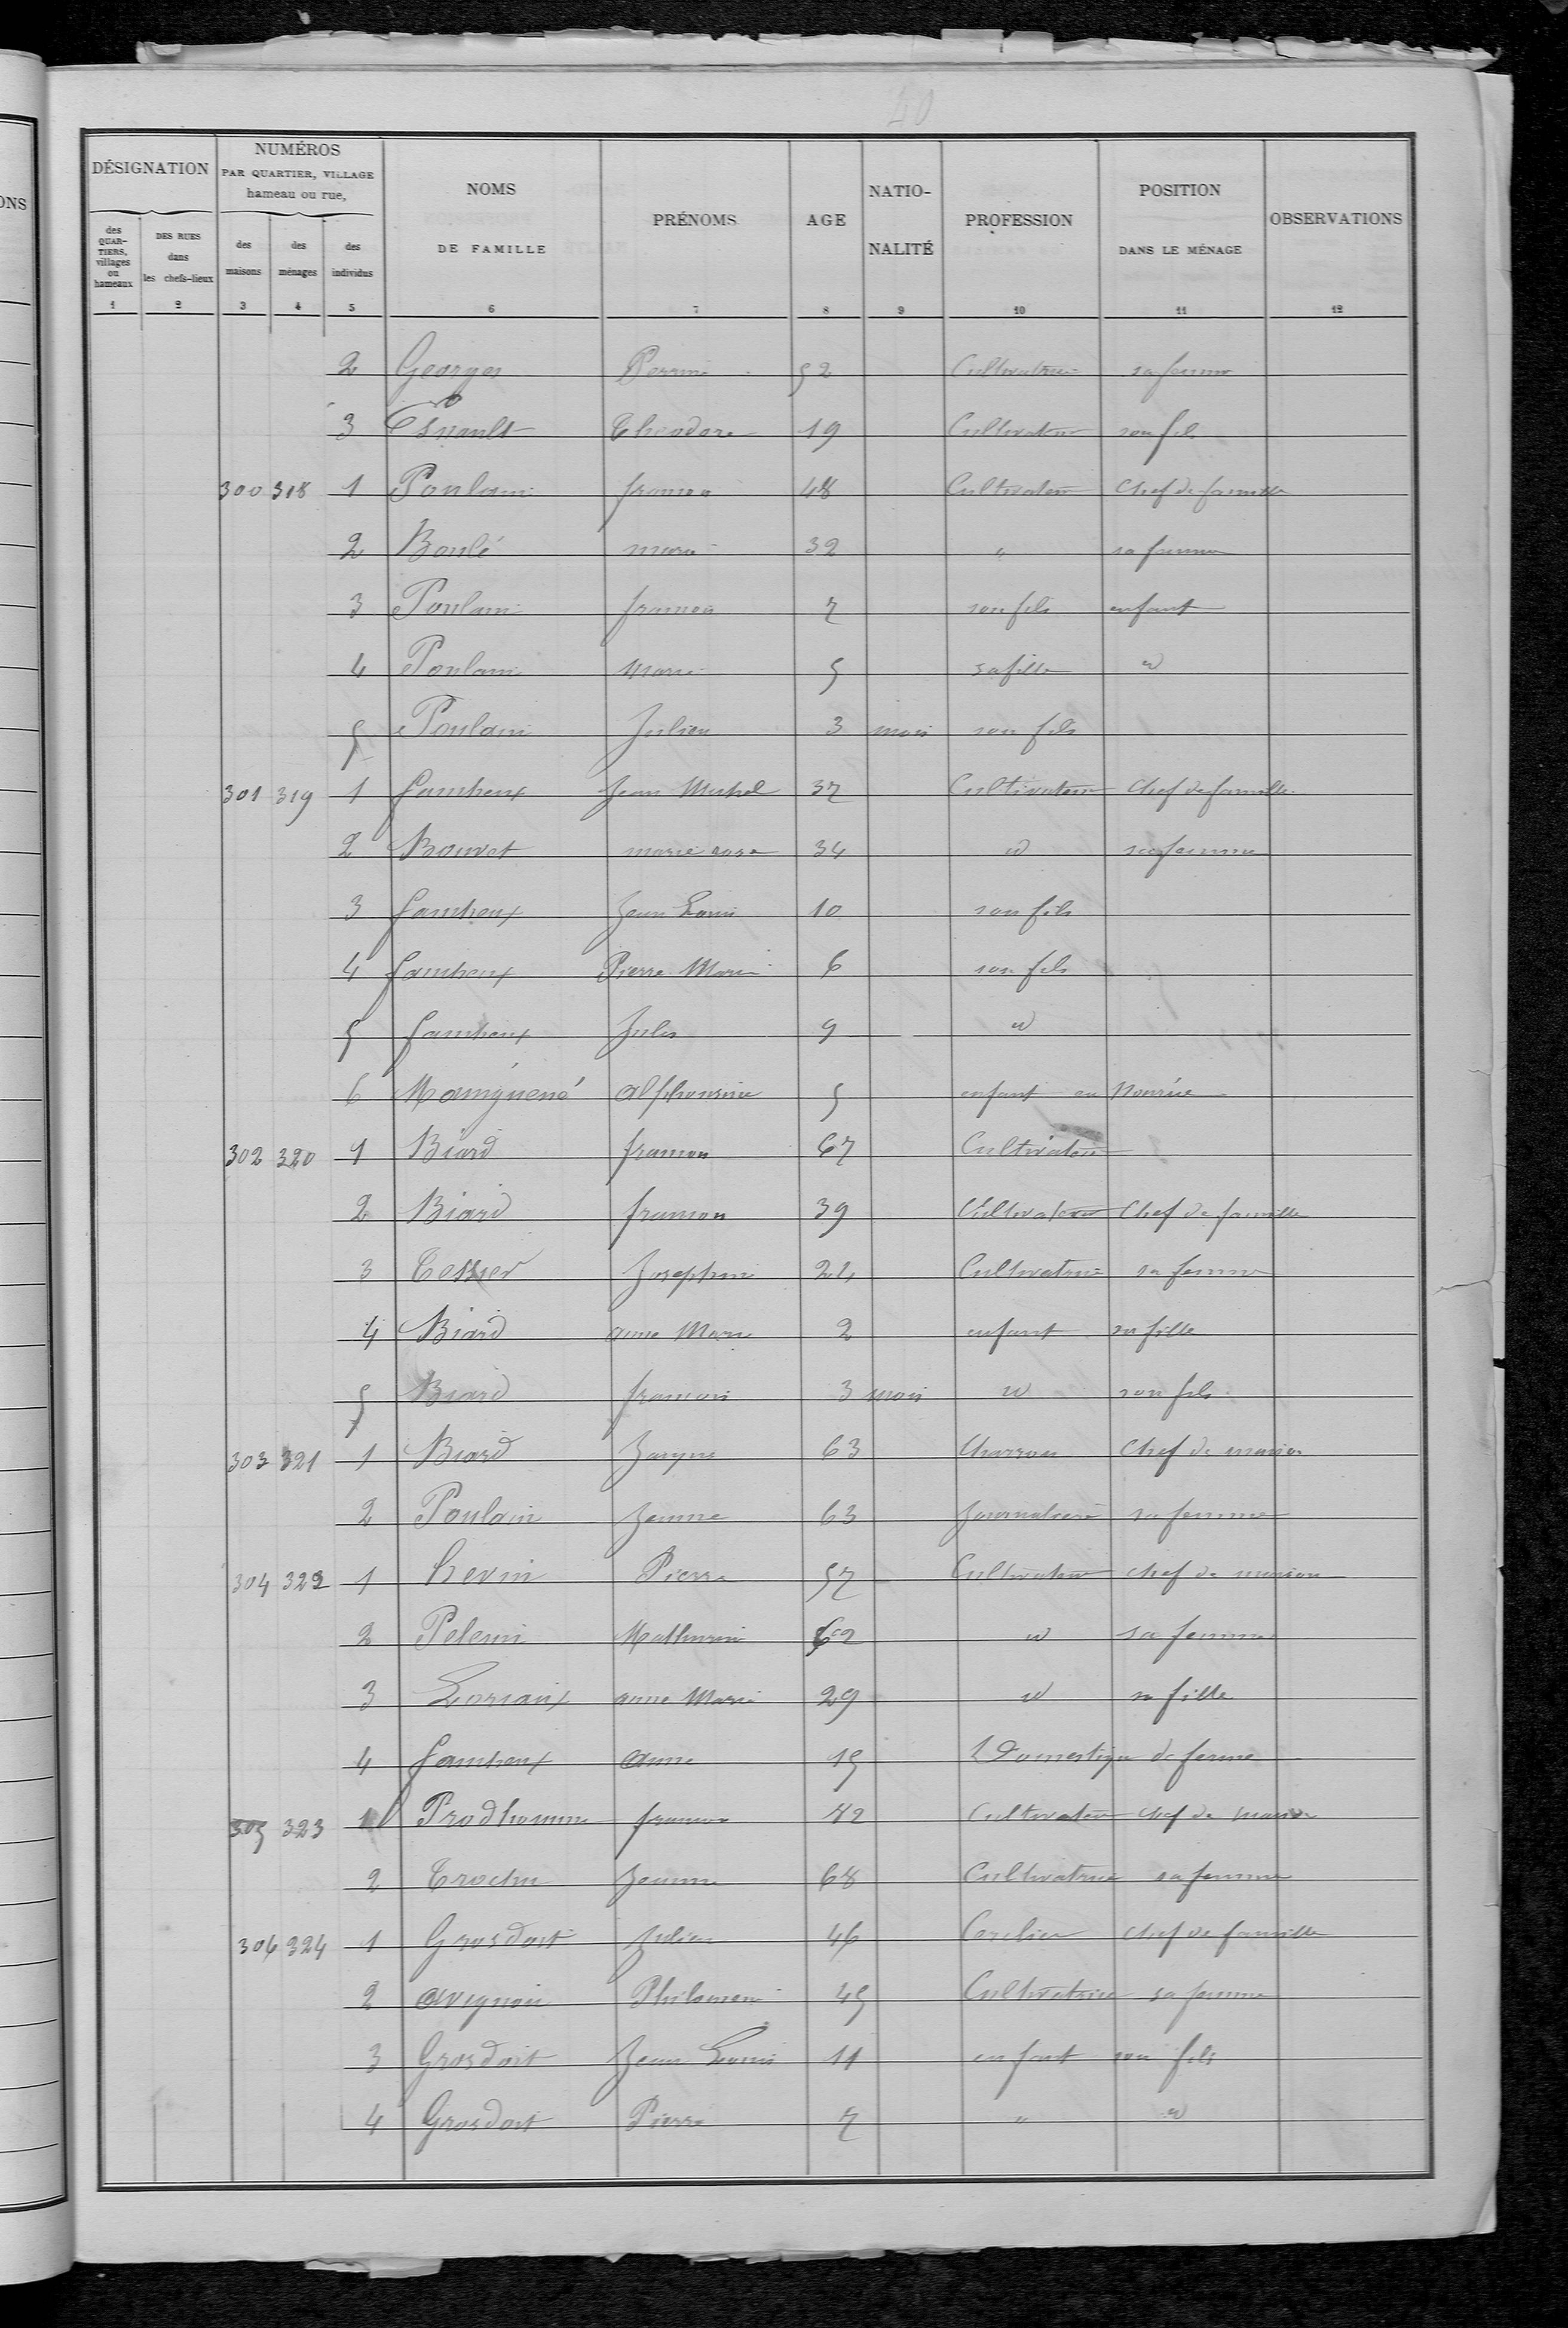 40
ONS
DÉSIGNATION
NUMÉROS
PAR QUARTIER, VILLAGE
hameau ou rue,
NOMS
DE FAMILLE
PRÉNOMS
AGE
NATIO-
NALITÉ
PROFESSION
POSITION
DANS LE MÉNAGE
OBSERVATIONS
des QUAR-TIERS, villages ou hameaux
DES RUES dans les chefs-lieux
des maisons
des ménages
des individus
1 2 3 4 5 6 7 8 9 10 11 12
2 Georges Perrine 52 Cultivatrice sa femme
3 Esnault Theodore 19 Cultivateur son fils
300 318 1 Poulain 48 Cultivateur Chef de famille
2 Boulé marie 32 " sa femme
3 Poulain 7 son fils enfant
4 Poulain Marie 5 sa fille id
5 Poulain Julien 3 mois son fils
301 319 1 Jean Michel 37 Cultivateur Chef de famille
2 Bouvet marie rose 34 id sa femme
3 Jean Louis 10 son fils
4 Pierre Marie 6 son fils
5 Jules 9 id
6 Alphonsine 5 enfant en Nourice
302 320 1 Biard 67 Cultivateur
2 Biard 39 Cultivateur Chef de famille
3 Tessier Josephine 24 Cultivatrice sa femme
4 Biard anne Marie 2 enfant sa fille
5 Biard francois 3 mois id son fils
303 321 1 Biard 63 Charron Chef de maison
2 Poulain Jeanne 63 Journaliere sa femme
304 322 1 hevin Pierre 57 Cultivateur chef de maison
2 Pelerin Mathurine 62 id sa femme
3 anne Marie 29 id sa fille
4 anne 15 Domestique de ferme
305 323 1 Prodhomme 42 Cultivateur chef de maison
2 Trochu Jeanne 68 Cultivatrice sa femme
306 324 1 Grosdoit Julien 46 chef de famille
2 avignon Philomene 45 Cultivatrice sa femme
3 Grosdoit Jean Louis 11 enfant son fils
4 Grosdoit Pierre 7 " id